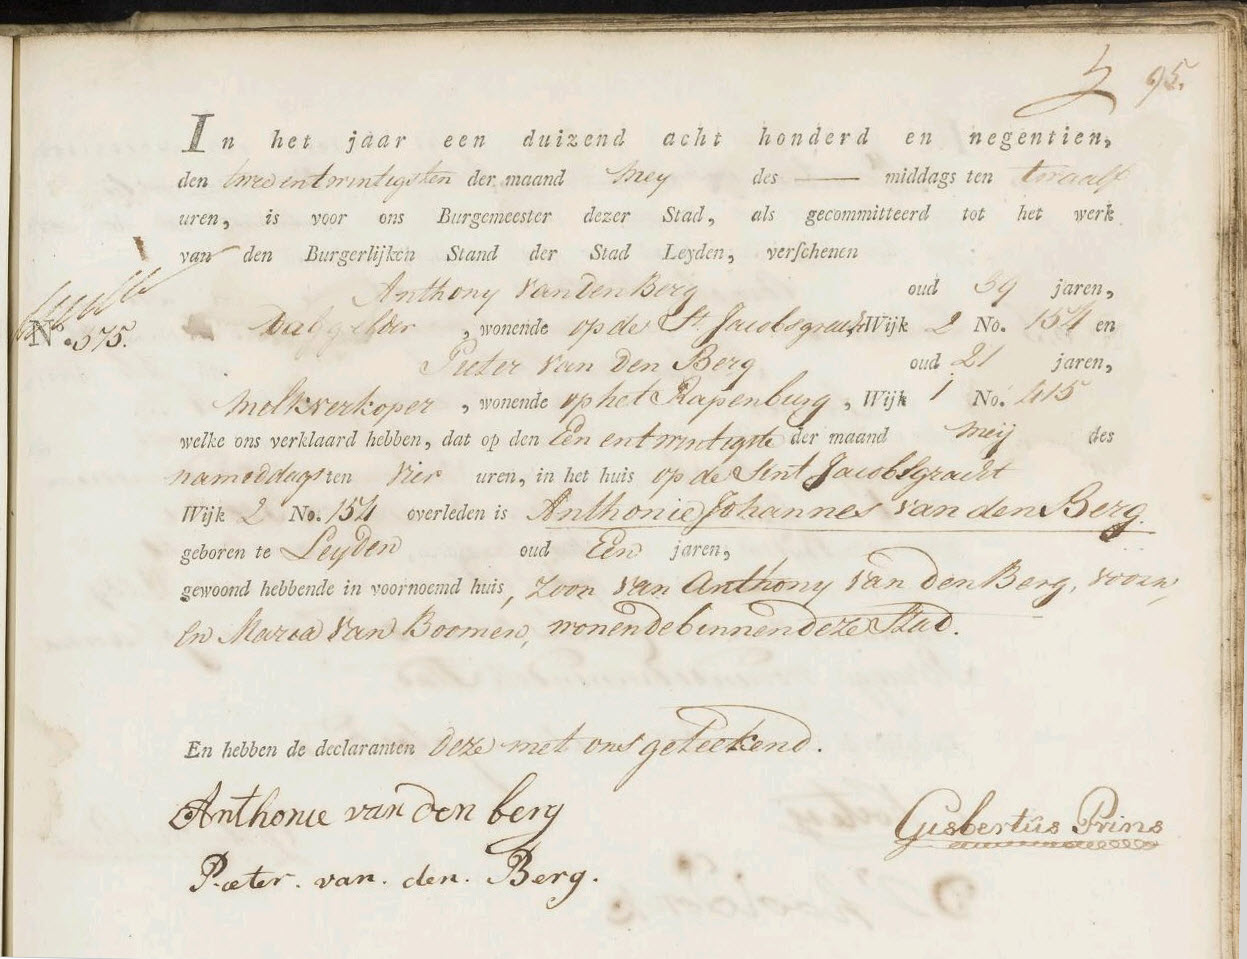 95.
In het jaar een duizend acht honderd en negentien,
den tweeentwintigsten der maand Mey des — middags ten twaalf
uren, is voor ons Burgemeester dezer Stad, als gecommitteerd tot het werk
van den Burgerlijken Stand der Stad Leyden, verschenen
Anthony van den Berg oud 39 jaren,
No. 375.
, wonende op de St. Jacobsgracht, Wijk 2 No. 154 en
Pieter van den Berg oud 21 jaren,
melkverkoper, wonende op het Rapenburg, Wijk 1 No. 415
welke ons verklaard hebben, dat op den Een entwintigste der maand Meij des
nameddags ten vier uren, in het huis op de Sint Jacobsgracht
Wijk 2 No. 154 overleden is Anthonie Johannes van den Berg.
geboren te Leyden oud Een jaren,
gewoond hebbende in voornoemd huis, Zoon van Anthony van den Berg, voorn,
en Maria van Boomen, wonende binnen deze Stad.
En hebben de declaranten deze met ons geteekend.
Anthonie van den berg
Gijsbertûs Prins
Pieter. van. den. Berg.